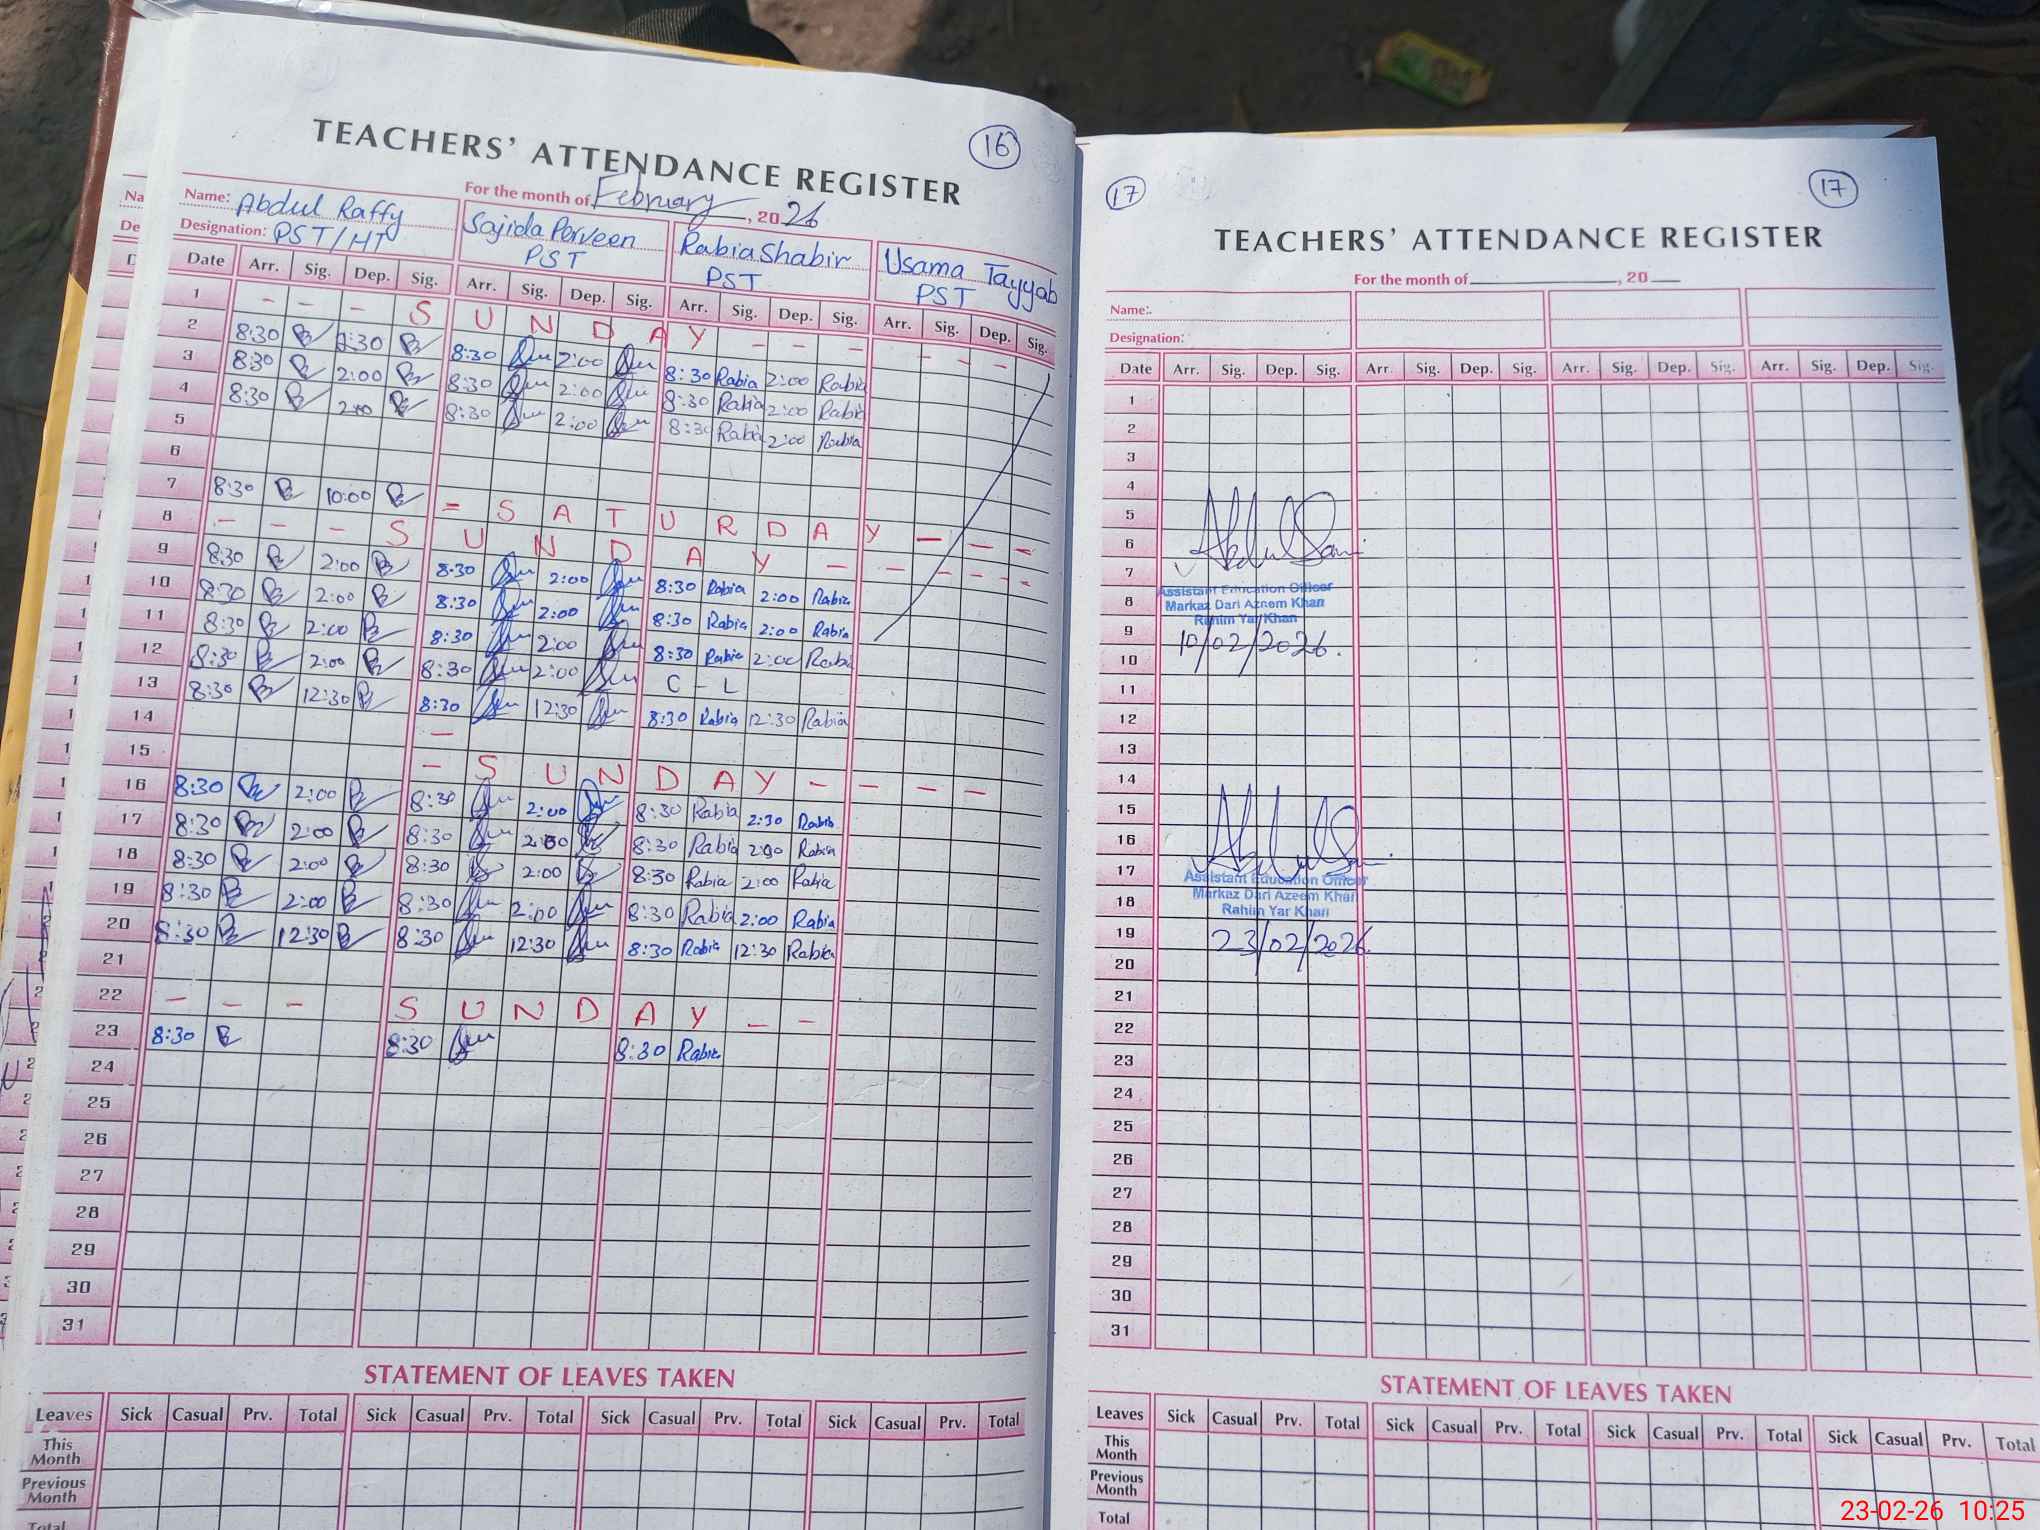 16
TEACHERS' ATTENDANCE REGISTER
For the month of February, 2026
Name: Abdul Raffy Sajida Perveen Rabia Shabir Usama Tayyab
Designation: PST/HT PST PST PST
Date Arr. Sig. Dep. Sig. Arr. Sig. Dep. Sig. Arr. Sig. Dep. Sig. Arr. Sig. Dep. Sig.
1 - - - S U N D A Y - - - - - -
2 8:30 2:30 8:30 2:00 8:30 Rabia 2:00 Rabia
3 8:30 2:00 8:30 2:00 8:30 Rabia 2:00 Rabia
4 8:30 2:00 8:30 2:00 8:30 Rabia 2:00 Rabia
5
6
7 8:30 10:00 - S A T U R D A Y - - -
8 - - - S U N D A Y - - - - -
9 8:30 2:00 8:30 2:00 8:30 Rabia 2:00 Rabia
10 8:30 2:00 8:30 2:00 8:30 Rabia 2:00 Rabia
11 8:30 2:00 8:30 2:00 8:30 Rabia 2:00 Rabia
12 8:30 2:00 8:30 2:00 C - L
13 8:30 12:30 8:30 12:30 8:30 Rabia 12:30 Rabia
14 -
15 - S U N D A Y - - - -
16 8:30 2:00 8:30 2:00 8:30 Rabia 2:30 Rabia
17 8:30 2:00 8:30 2:00 8:30 Rabia 2:00 Rabia
18 8:30 2:00 8:30 2:00 8:30 Rabia 2:00 Rabia
19 8:30 2:00 8:30 2:00 8:30 Rabia 2:00 Rabia
20 8:30 12:30 8:30 12:30 8:30 Rabia 12:30 Rabia
21
22 - - - S U N D A Y - -
23 8:30 8:30 8:30 Rabia
24
25
26
27
28
29
30
31
STATEMENT OF LEAVES TAKEN
Leaves Sick Casual Prv. Total Sick Casual Prv. Total Sick Casual Prv. Total Sick Casual Prv. Total
This Month
Previous Month
Total
17 17
TEACHERS' ATTENDANCE REGISTER
For the month of , 20
Name:
Designation:
Date Arr. Sig. Dep. Sig. Arr. Sig. Dep. Sig. Arr. Sig. Dep. Sig. Arr. Sig. Dep. Sig.
1
2
3
4
5
6
7
Assistant Education Officer
8 Markaz Dari Azeem Khan
Rahim Yar Khan
9 10/02/2026.
10
11
12
13
14
15
16
17 Assistant Education Officer
Markaz Dari Azeem Khan
18 Rahim Yar Khan
19 23/02/2026.
20
21
22
23
24
25
26
27
28
29
30
31
STATEMENT OF LEAVES TAKEN
Leaves Sick Casual Prv. Total Sick Casual Prv. Total Sick Casual Prv. Total Sick Casual Prv. Total
This Month
Previous Month
Total
23-02-26 10:25